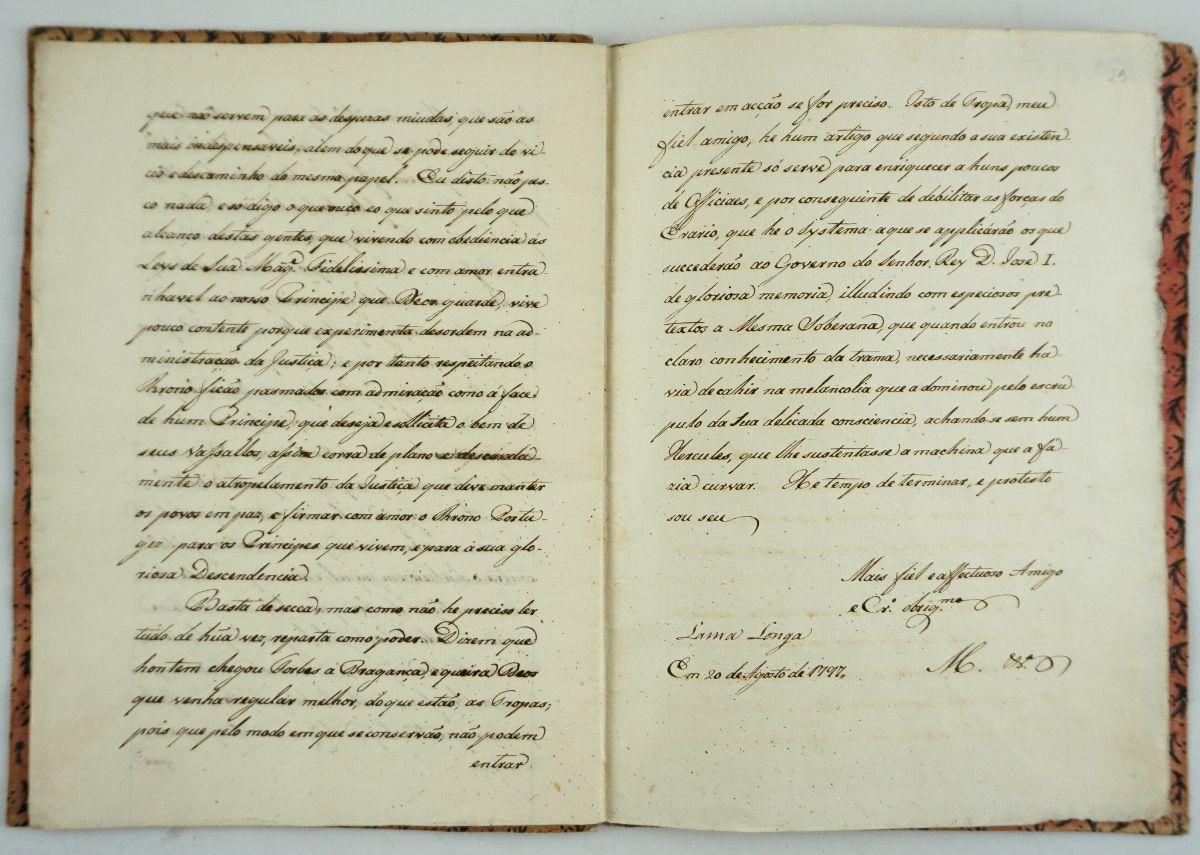 que não servem para as despezas miudas, que são as
mais indespensaveis, alem do que se pode seguir do vi-
cio e descaminho do mesmo papel. Eu disto não pes-
co nada e só digo o que ouço e o que sinto pelo que
alcanço destas gentes, que vivendo com obediência ás
Leys de Sua Mag.e Fidelissima e com amor entra-
nhavel ao nosso Principe que Deos guarde, vive
pouco contente porque experimenta desordem na ad-
ministração da Justiça; e por tanto respeitando o
Throno ficão pasmados com admiração como á face
de hum Principe, que deseja e sollicita o bem de
seus Vassallos, assim corra de plano e descarada-
mente o atropelamento da Justiça que deve manter
os povos em paz, e firmar com amor o Throno Portu-
guez para os Principes que vivem, e para a sua glo-
riosa Descendencia.
Basta de secca, mas como não he preciso ler
tudo de húa vez, reparta como poder. Dizem que
hontem chegou Forbes a Bragança, e queira Deos
que venha regular melhor, do que estão, as Tropas;
pois que pelo modo em que se conservão, não podem
entrar
29
entrar em acção se for preciso. Isto de Tropa, meu
fiel amigo, he hum artigo que segundo a sua existen-
cia presente só serve para enriquecer a huns poucos
de Officiaes, e por conseguinte de debilitar as forças do
Erario, que he o Systema a que se applicárão os que
succederão ao Governo do Senhor Rey D. José I.
de gloriosa memoria, illudindo com especiosos pre-
textos a Mesma Soberana, que quando entrou no
claro conhecimento da trama, necessariamente ha-
via de cahir na melancolia que a dominou pelo escru-
pulo da sua delicada consciencia, achando-se sem hum
Hercules, que lhe sustentasse a machina que a fa-
zia curvar. He tempo de terminar, e protesto
sou seu
Mais fiel e affectuoso Amigo
e Cr.o obrig.mo
Lama Longa
Em 20 de Agosto de 1797.
M.